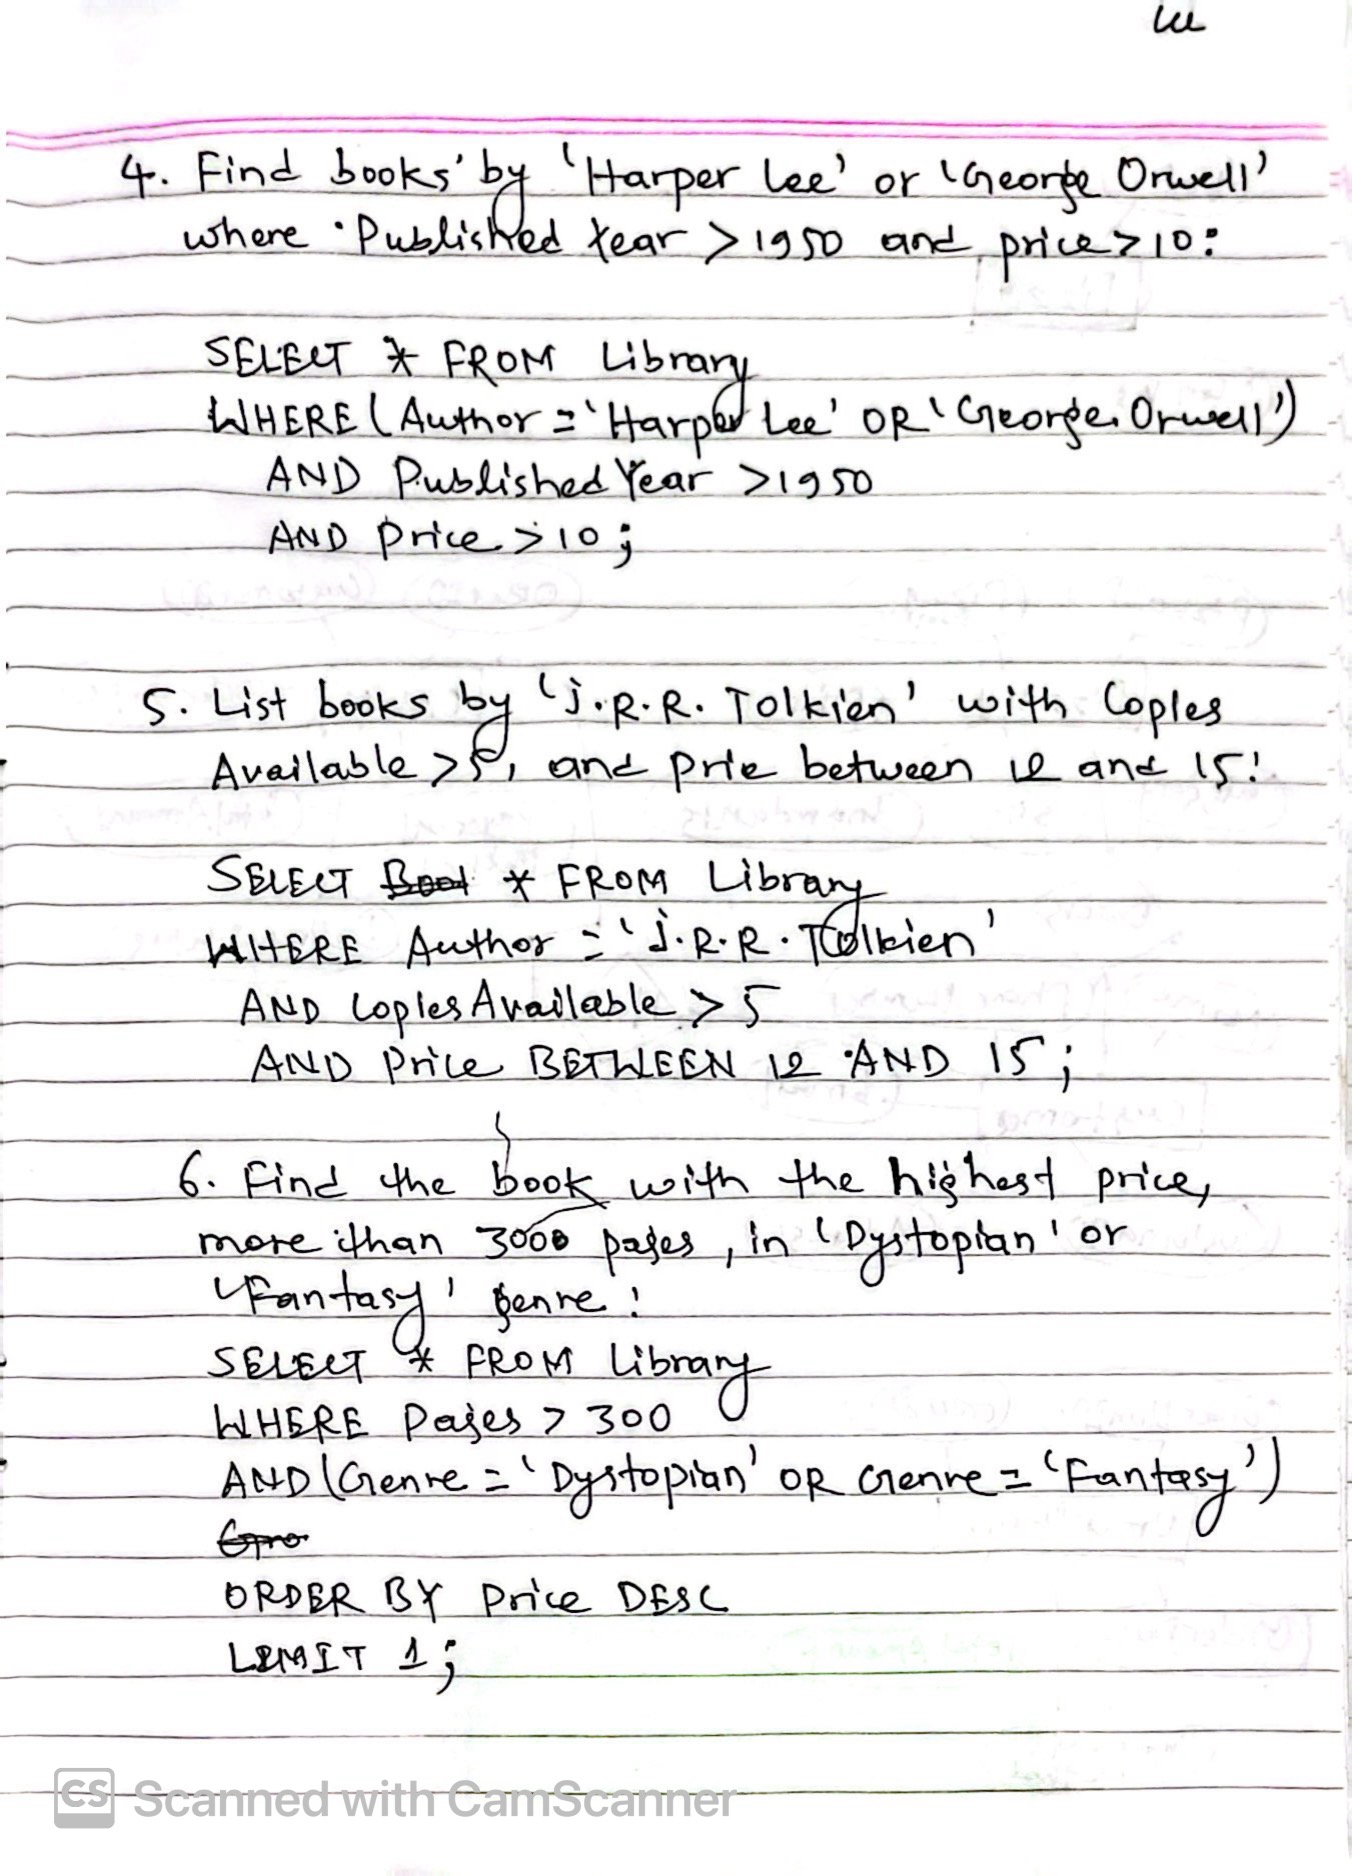 4. Find books by 'Harper Lee' or 'George Orwell'
where Published Year > 1950 and price > 10:
SELECT * FROM Library
WHERE (Author = 'Harper Lee' OR 'George Orwell')
AND Published Year > 1950
AND Price > 10;
5. List books by 'J.R.R. Tolkien' with Coples
Available > 5, and prie between 12 and 15:
SELECT * FROM Library
WHERE Author = 'J.R.R. Tolkien'
AND Coples Available > 5
AND Price BETWEEN 12 AND 15;
6. Find the book with the highest price,
more than 3000 pages, in 'Dystopian' or
'Fantasy' genre:
SELECT * FROM Library
WHERE Pages > 300
AND (Genre = 'Dystopian' OR Genre = 'Fantasy')
ORDER BY Price DESC
LIMIT 1;
CS Scanned with CamScanner